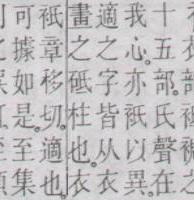 十五部。氏聲在
我心。亦祇以異。
適之字皆从衣
畫之砥柱也。衣
祇章移切。適也。
可據如是。至集